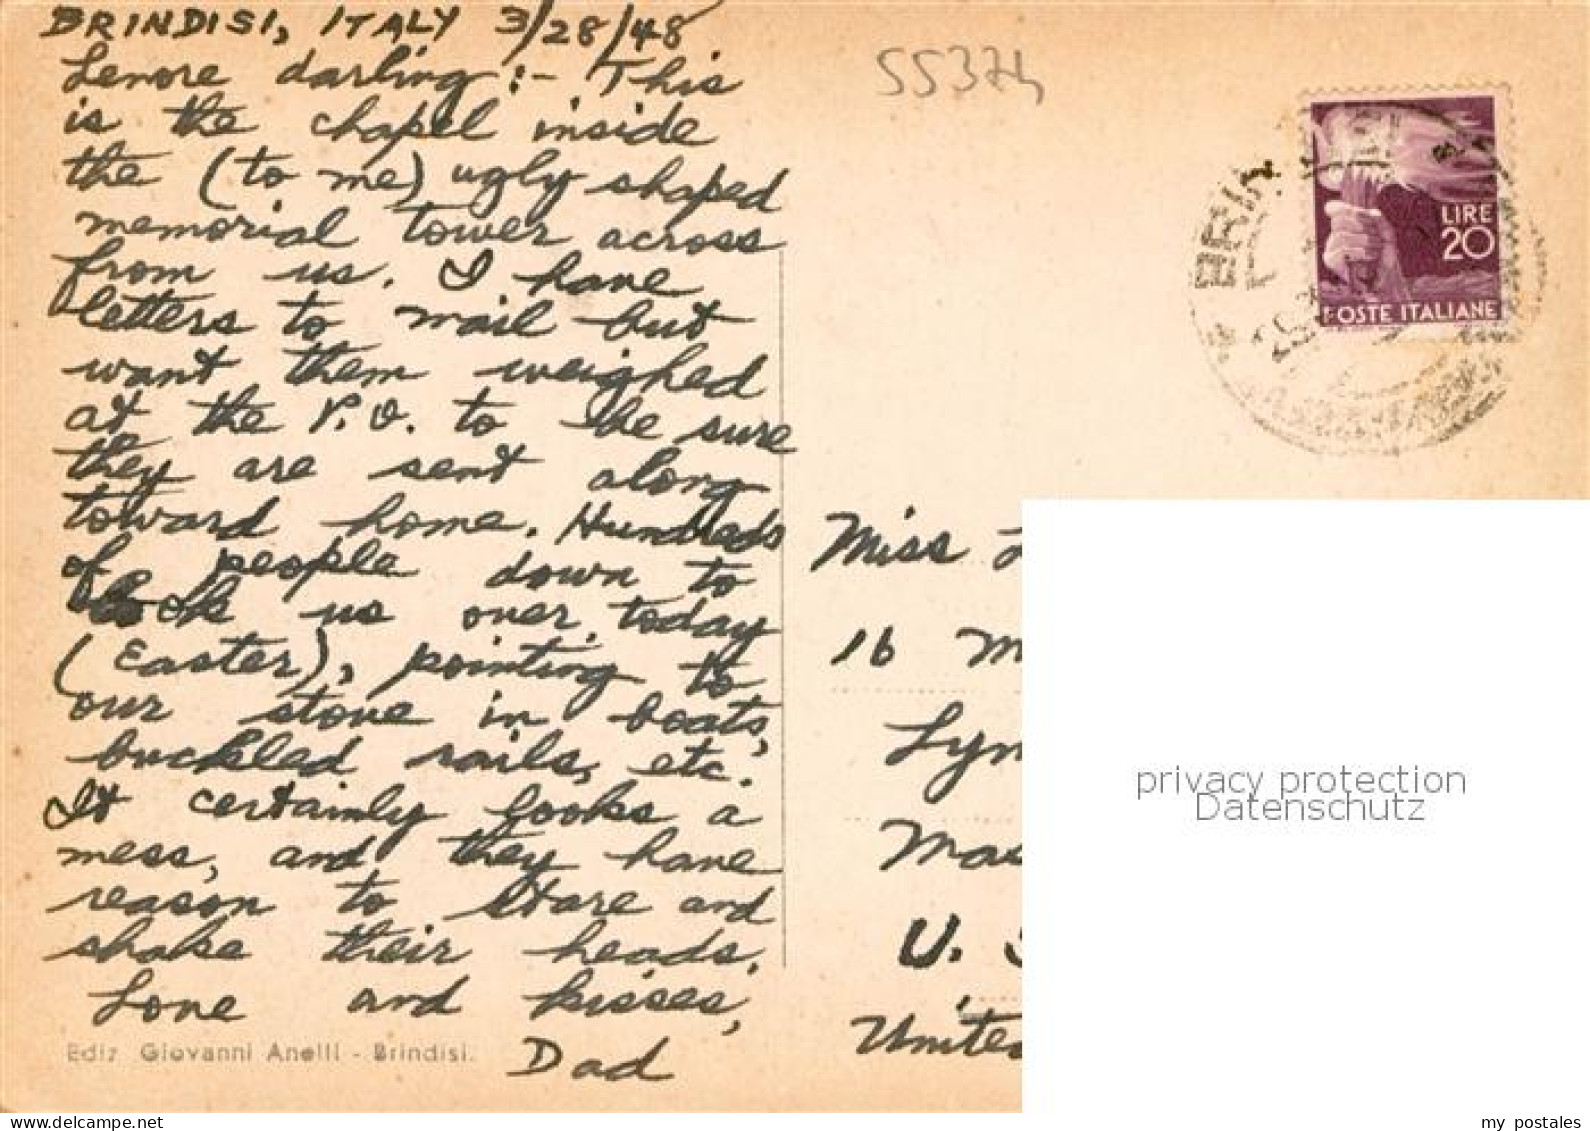 BRINDISI, ITALY 3/28/48
Lenore darling:- This
is the chapel inside
the (to me) ugly shaped
memorial tower across
from us. I have
letters to mail but
want them weighed
at the P.O. to be sure
they are sent along
toward home. Hundreds
of people down to
look us over today
(Easter), pointing to
our stove in boats,
buckled rails, etc.
It certainly looks a
mess, and they have
reason to stare and
shake their heads.
Love and kisses,
Dad
Ediz Giovanni Anelli - Brindisi.
55374
LIRE
20
POSTE ITALIANE
Miss
16 M
Lyn
Mas
U. S
Unite
privacy protection
Datenschutz
my postales